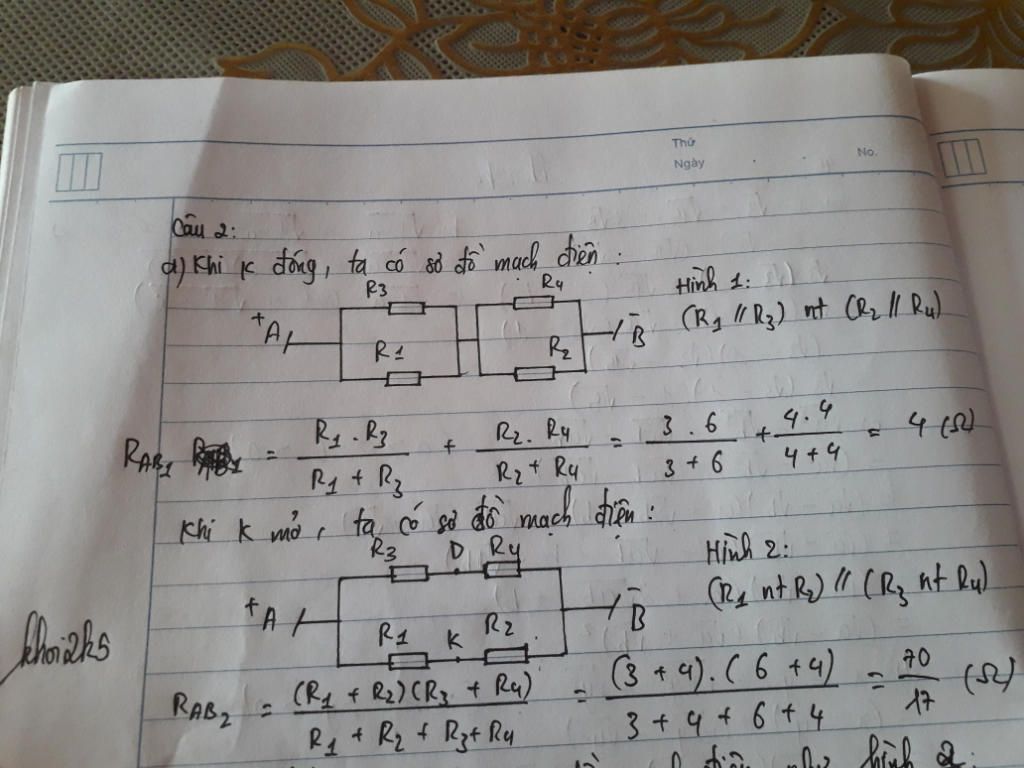 Thứ
Ngày . . No.
Câu 2:
a) Khi K đóng, ta có sơ đồ mạch điện :
R3 R4 Hình 1:
+ A R1 R2 - B (R1 // R3) nt (R2 // R4)
RAB1 = R1 . R3 / R1 + R3 + R2 . R4 / R2 + R4 = 3 . 6 / 3 + 6 + 4 . 4 / 4 + 4 = 4 (Ω)
Khi K mở, ta có sơ đồ mạch điện :
R3 D R4 Hình 2:
+ A R1 K R2 - B (R1 nt R2) // (R3 nt R4)
khoi2k5
RAB2 = (R1 + R2)(R3 + R4) / R1 + R2 + R3 + R4 = (3 + 4).(6 + 4) / 3 + 4 + 6 + 4 = 70 / 17 (Ω)
mạch điện như hình 2: